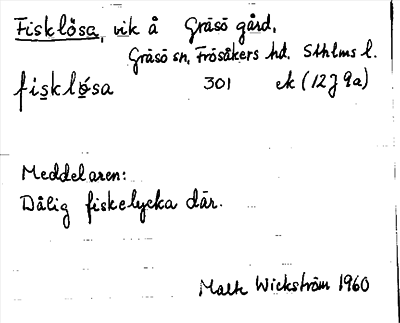 Fisklösa, vik å Gräsö gård,
Gräsö sn, Frösåkers hd. Sthlms l.
fisklösa 301 ek (12J 9a)
Meddelaren:
Dålig fiskelycka där.
Malte Wickström 1960